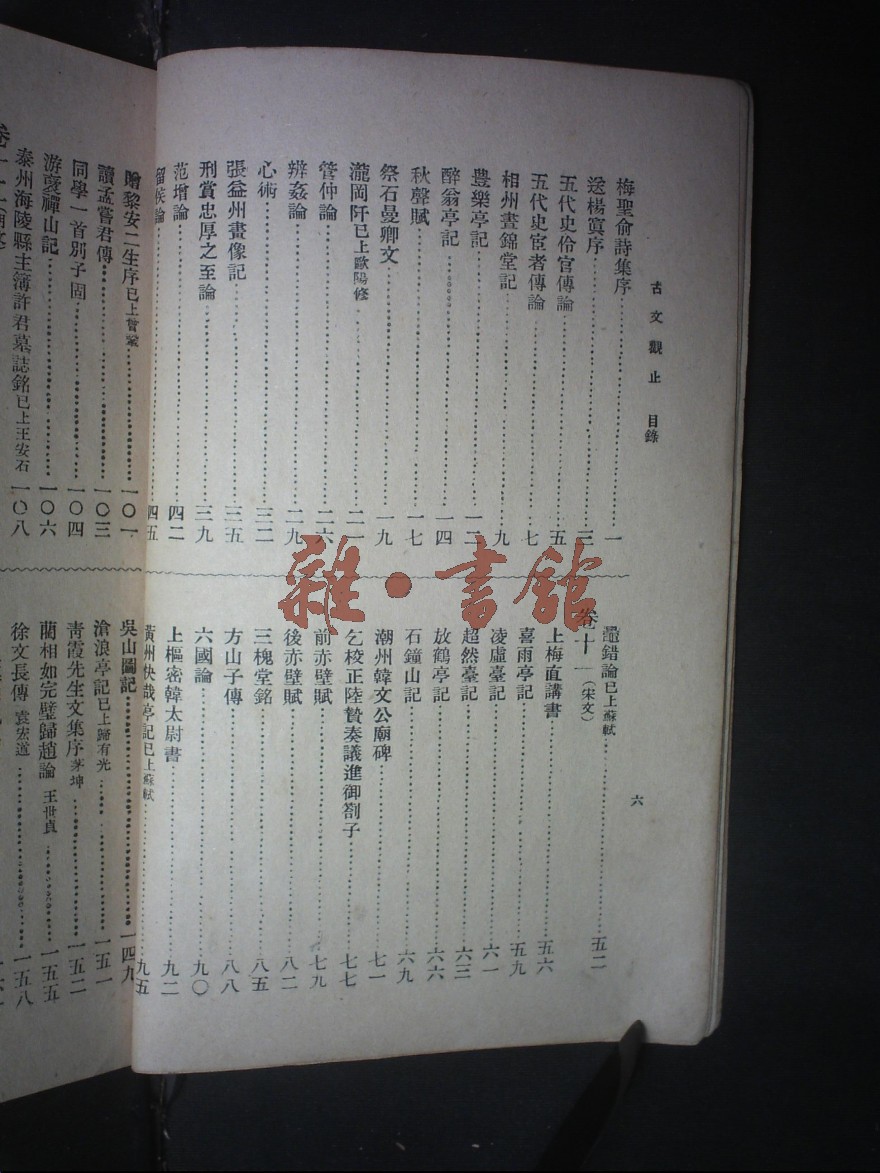 古文觀止 目錄
六
梅聖俞詩集序 一
送楊寘序 三
五代史伶官傳論 五
五代史宦者傳論 七
相州晝錦堂記 九
豐樂亭記 一二
醉翁亭記 一四
秋聲賦 一七
祭石曼卿文 一九
瀧岡阡已上歐陽修 二一
管仲論 二六
辨姦論 二九
心術 三二
張益州畫像記 三五
刑賞忠厚之至論 三九
范增論 四二
留侯論 四五
鼂錯論已上蘇軾 五二
卷十一(宋文)
上梅直講書 五六
喜雨亭記 五九
凌虛臺記 六一
超然臺記 六三
放鶴亭記 六六
石鐘山記 六九
潮州韓文公廟碑 七一
乞校正陸贄奏議進御劄子 七七
前赤壁賦 七九
後赤壁賦 八二
三槐堂銘 八五
方山子傳 八八
六國論 九〇
上樞密韓太尉書 九二
黃州快哉亭記已上蘇軾 九五
贈黎安二生序已上曾鞏 一〇一
讀孟嘗君傳 一〇三
同學一首別子固 一〇四
游褒禪山記 一〇六
泰州海陵縣主簿許君墓誌銘已上王安石 一〇八
吳山圖記 一四九
滄浪亭記已上歸有光 一五一
青霞先生文集序茅坤 一五二
藺相如完璧歸趙論 王世貞 一五五
徐文長傳 袁宏道 一五八
雜·書館